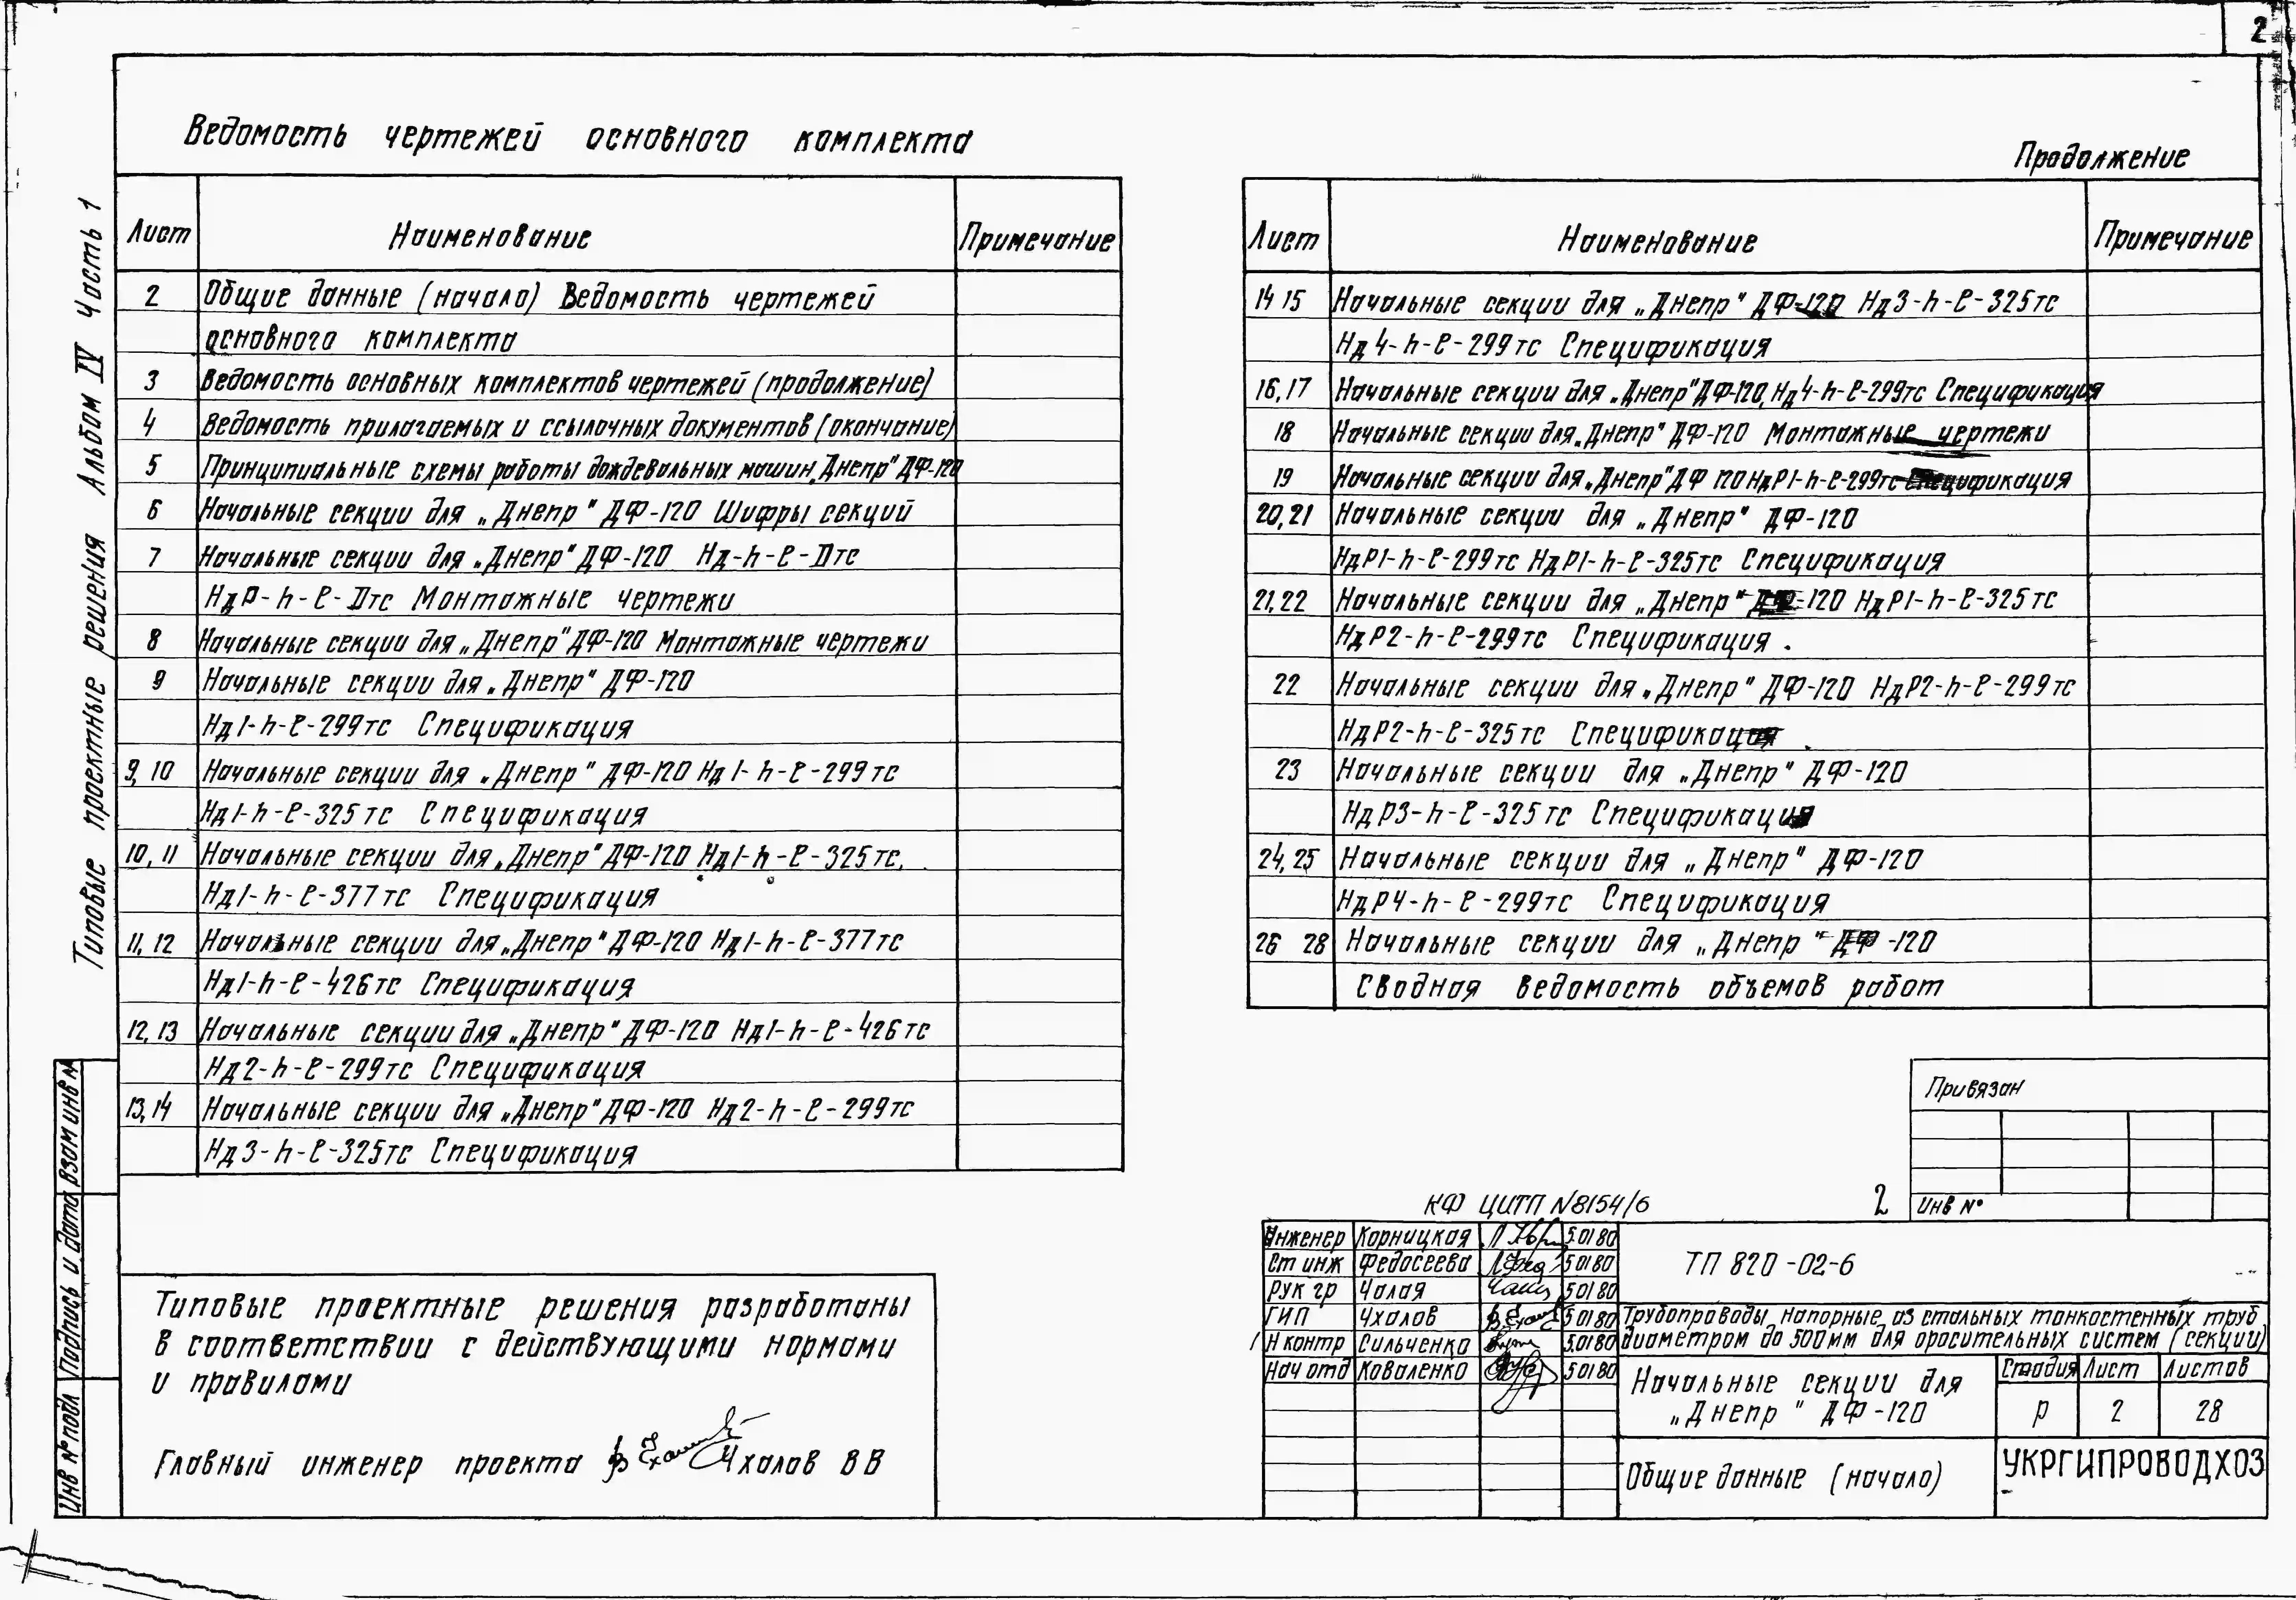 2
Типовые проектные решения Альбом IV Часть 1
Ведомость чертежей основного комплекта
Лист Наименование Примечание
2 Общие данные (начало) Ведомость чертежей
основного комплекта
3 Ведомость основных комплектов чертежей (продолжение)
4 Ведомость прилагаемых и ссылочных документов (окончание)
5 Принципиальные схемы работы дождевальных машин „Днепр" ДФ-120
6 Начальные секции для „Днепр" ДФ-120 Шифры секций
7 Начальные секции для „Днепр" ДФ-120 Нд-h-ℓ-Dтс
НдР-h-ℓ-Dтс Монтажные чертежи
8 Начальные секции для „Днепр" ДФ-120 Монтажные чертежи
9 Начальные секции для „Днепр" ДФ-120
Нд1-h-ℓ-299тс Спецификация
9, 10 Начальные секции для „Днепр" ДФ-120 Нд1-h-ℓ-299тс
Нд1-h-ℓ-325тс Спецификация
10, 11 Начальные секции для „Днепр" ДФ-120 Нд1-h-ℓ-325тс,
Нд1-h-ℓ-377тс Спецификация
11, 12 Начальные секции для „Днепр" ДФ-120 Нд1-h-ℓ-377тс
Нд1-h-ℓ-426тс Спецификация
12, 13 Начальные секции для „Днепр" ДФ-120 Нд1-h-ℓ-426тс
Нд2-h-ℓ-299тс Спецификация
13, 14 Начальные секции для „Днепр" ДФ-120 Нд2-h-ℓ-299тс
Нд3-h-ℓ-325тс Спецификация
Продолжение
Лист Наименование Примечание
14 15 Начальные секции для „Днепр" ДФ-120 Нд3-h-ℓ-325тс
Нд4-h-ℓ-299тс Спецификация
16, 17 Начальные секции для „Днепр" ДФ-120, Нд4-h-ℓ-299тс Спецификация
18 Начальные секции для „Днепр" ДФ-120 Монтажные чертежи
19 Начальные секции для „Днепр" ДФ 120 НдР1-h-ℓ-299тс Спецификация
20, 21 Начальные секции для „Днепр" ДФ-120
НдР1-h-ℓ-299тс НдР1-h-ℓ-325тс Спецификация
21, 22 Начальные секции для „Днепр" ДФ-120 НдР1-h-ℓ-325тс
НдР2-h-ℓ-299тс Спецификация .
22 Начальные секции для „Днепр" ДФ-120 НдР2-h-ℓ-299тс
НдР2-h-ℓ-325тс Спецификация .
23 Начальные секции для „Днепр" ДФ-120
НдР3-h-ℓ-325тс Спецификация
24, 25 Начальные секции для „Днепр" ДФ-120
НдР4-h-ℓ-299тс Спецификация
26 28 Начальные секции для „Днепр" ДФ-120
Сводная ведомость объемов работ
Привязан
Инв №
КФ ЦИТП №8154/6 2
Инженер Корницкая 5.01 80
Ст инж Федосеева 5 01 80
Рук гр Чалая 5 01 80
ГИП Чхалов 5 01 80
Н контр Сильченко 5.01 80
Нач отд Коваленко 5 01 80
ТП 820-02-6
Трубопроводы напорные из стальных тонкостенных труб
диаметром до 500мм для оросительных систем (секции)
Начальные секции для
„Днепр" ДФ-120
Стадия Лист Листов
Р 2 28
Общие данные (начало)
УКРГИПРОВОДХОЗ
Типовые проектные решения разработаны
в соответствии с действующими нормами
и правилами
Главный инженер проекта Чхалов В В
Инв № подл Подпись и дата Взам инв №